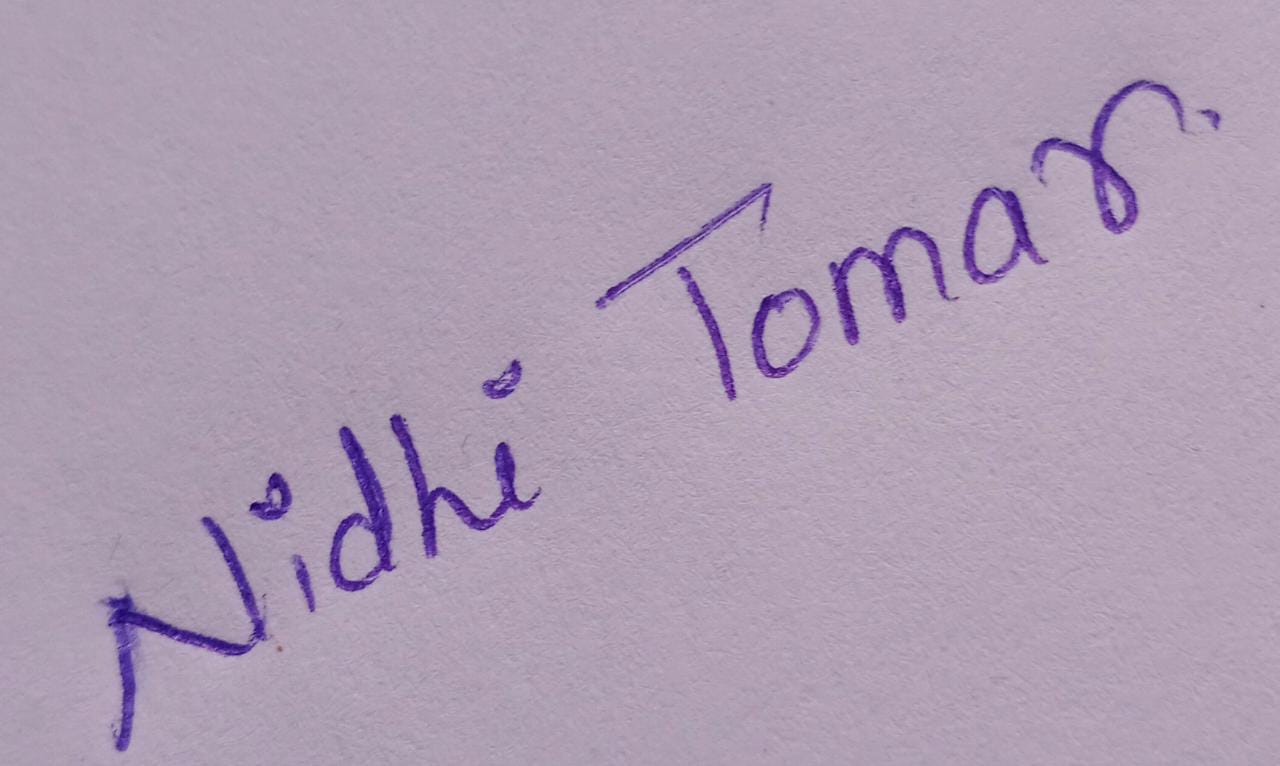 Nidhi Tomar.